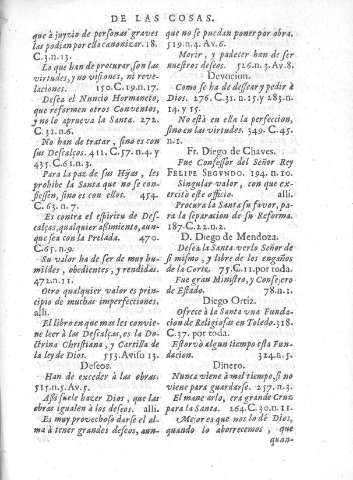 DE LAS COSAS.
que à juyzio de personas graves
las podian por ella canonizar. 18.
C.3.n.13.
Lo que han de procurar, son las
virtudes, y no visiones, ni reve-
laciones. 150.C.19.n.17.
Desea el Nuncio Hormaneto,
que reformen otros Conventos,
y no lo aprueva la Santa. 272.
C.31.n.6.
No han de tratar, sino es con
sus Descalços. 411.C.57.n.4. y
435.C.61.n.3.
Para la paz de sus Hijas, les
prohibe la Santa que no se con-
fiessen, sino es con ellos. 454.
C.63.n.7.
Es contra el espiritu de Des-
calças, qualquier asimiento, aun-
que sea con la Prelada. 470.
C.65.n.9.
Su valor ha de ser de muy hu-
mildes, obedientes, y rendidas.
472.n.11.
Otro qualquier valor es prin-
cipio de muchas imperfecciones.
alli.
El libro en que mas les convie-
ne leer à las Descalças, es la Do-
ctrina Christiana, y Cartilla de
la ley de Dios. 555. Aviso 13.
Deseos.
Han de exceder à las obras.
515.n.5.Av.5.
Assi suele hazer Dios, que las
obras igualen à los deseos. alli.
Es muy provechoso darse el al-
ma à tener grandes deseos, aun-
que no se puedan poner por obra.
519.n.4.Av.6.
Morir, y padecer han de ser
nuestros deseos. 526.n.3.Av.8.
Devocion.
Como se ha de dessear y pedir à
Dios. 276. C.31.n.15. y 283.n.
14. y 15.
No està en ella la perfeccion,
sino en las virtudes. 349. C.45.
n.1.
Fr. Diego de Chaves.
Fue Confessor del Señor Rey
FELIPE SEGUNDO. 194.n.10.
Singular valor, con que ex-
ercitò este oficio. alli.
Procura la Santa su favor, pa-
ra la separacion de su Reforma.
187.C.22.n.2.
D. Diego de Mendoza.
Desea la Santa verlo Señor de
sì mismo, y libre de los engaños
de la Corte. 75.C.11. por toda.
Fue gran Ministro, y Consejero
de Estado. 78.n.1.
Diego Ortiz.
Ofrece à la Santa una Funda-
cion de Religiosas en Toledo. 318.
C.37. por toda.
Estorvò algun tiempo esta Fun-
dacion. 324.n.5.
Dinero.
Nunca viene à mal tiempo, si no
viene para guardarse. 257.n.3.
El manejarlo, era grande Cruz
para la Santa. 264.C.30.n.11.
Mejor es que nos lo dè Dios,
quando lo aborrecemos, que
quan-